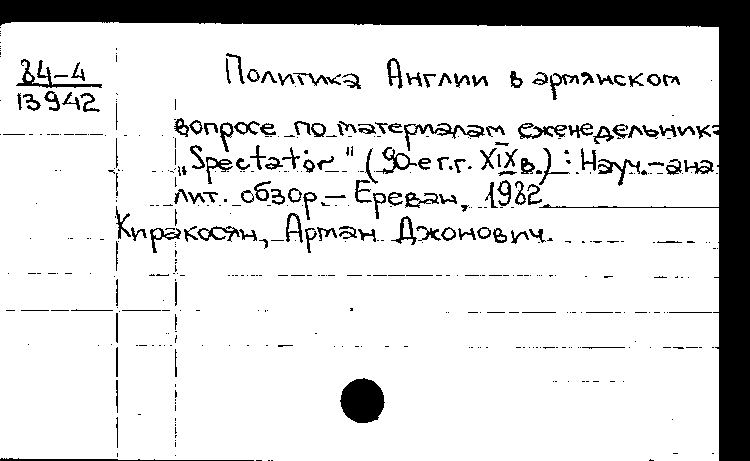 84-4
13942
Политика Англии в армянском
вопросе по материалам еженедельника
"Spectator" (90-е г.г. XIX в.) : Науч.-ана-
лит. обзор.- Ереван, 1982.
Киракосян, Арман Джонович.